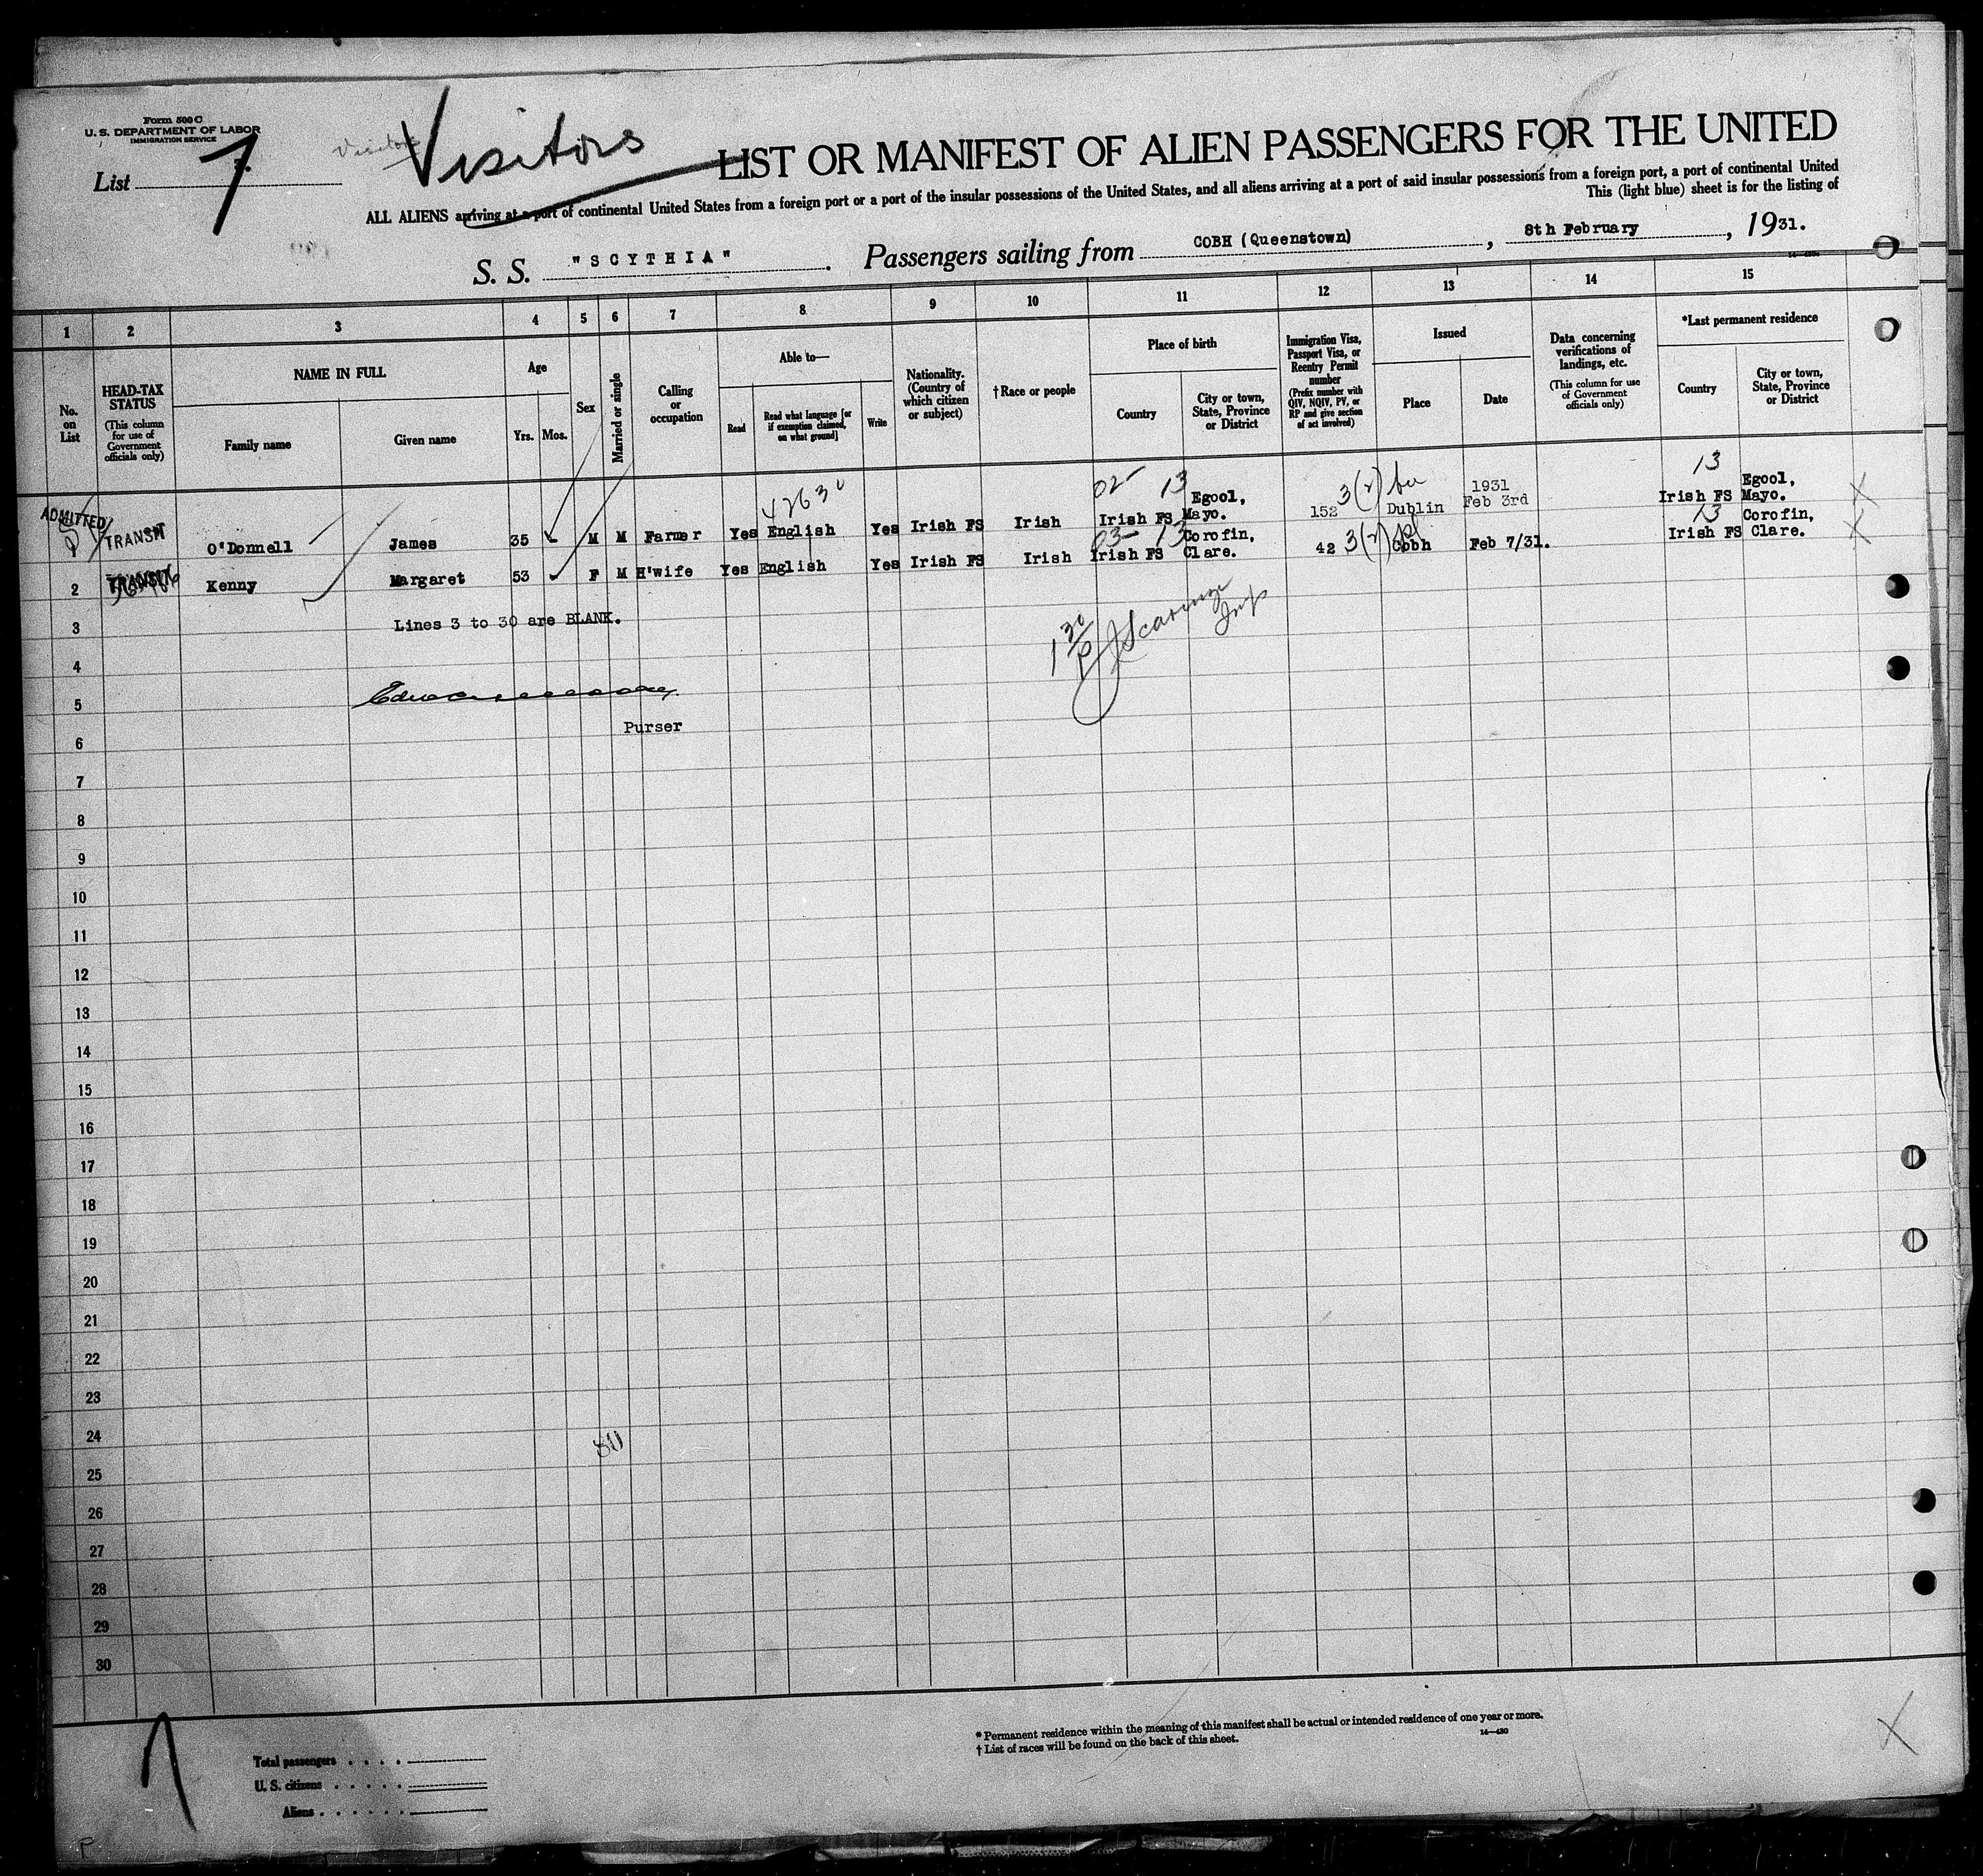 Form 500 C
U. S. DEPARTMENT OF LABOR
IMMIGRATION SERVICE
List 7
Visitors
LIST OR MANIFEST OF ALIEN PASSENGERS FOR THE UNITED
ALL ALIENS arriving at a port of continental United States from a foreign port or a port of the insular possessions of the United States, and all aliens arriving at a port of said insular possessions from a foreign port, a port of continental United
This (light blue) sheet is for the listing of
S. S. "SCYTHIA". Passengers sailing from COBH (Queenstown), 8th February, 1931.
1 2 3 4 5 6 7 8 9 10 11 12 13 14 15
No. on List
HEAD-TAX STATUS
(This column for use of Government officials only)
NAME IN FULL
Family name
Given name
Age
Yrs. Mos.
Sex
Married or single
Calling or occupation
Able to—
Read
Read what language [or if exemption claimed, on what ground]
Write
Nationality. (Country of which citizen or subject)
† Race or people
Place of birth
Country
City or town, State, Province or District
Immigration Visa, Passport Visa, or Reentry Permit number
(Prefix number with QIV, NQIV, PV, or RP and give section of act involved)
Issued
Place
Date
Data concerning verifications of landings, etc.
(This column for use of Government officials only)
*Last permanent residence
Country
City or town, State, Province or District
ADMITTED
1 TRANSIT O'Donnell James 35 - M M Farmer Yes English Yes Irish FS Irish Irish FS Egool, Mayo. 152 3(2) Dublin 1931 Feb 3rd Irish FS Egool, Mayo.
02- 13 13
2 TRANSIT Kenny Margaret 53 - F M H'wife Yes English Yes Irish FS Irish Irish FS Corofin, Clare. 42 3(2) Cobh Feb 7/31. Irish FS Corofin, Clare.
03- 13 13
3 Lines 3 to 30 are BLANK.
4
5
Purser
6
7
8
9
10
11
12
13
14
15
16
17
18
19
20
21
22
23
24
80
25
26
27
28
29
30
7
Total passengers
U. S. citizens
Aliens
* Permanent residence within the meaning of this manifest shall be actual or intended residence of one year or more.
† List of races will be found on the back of this sheet.
14—430